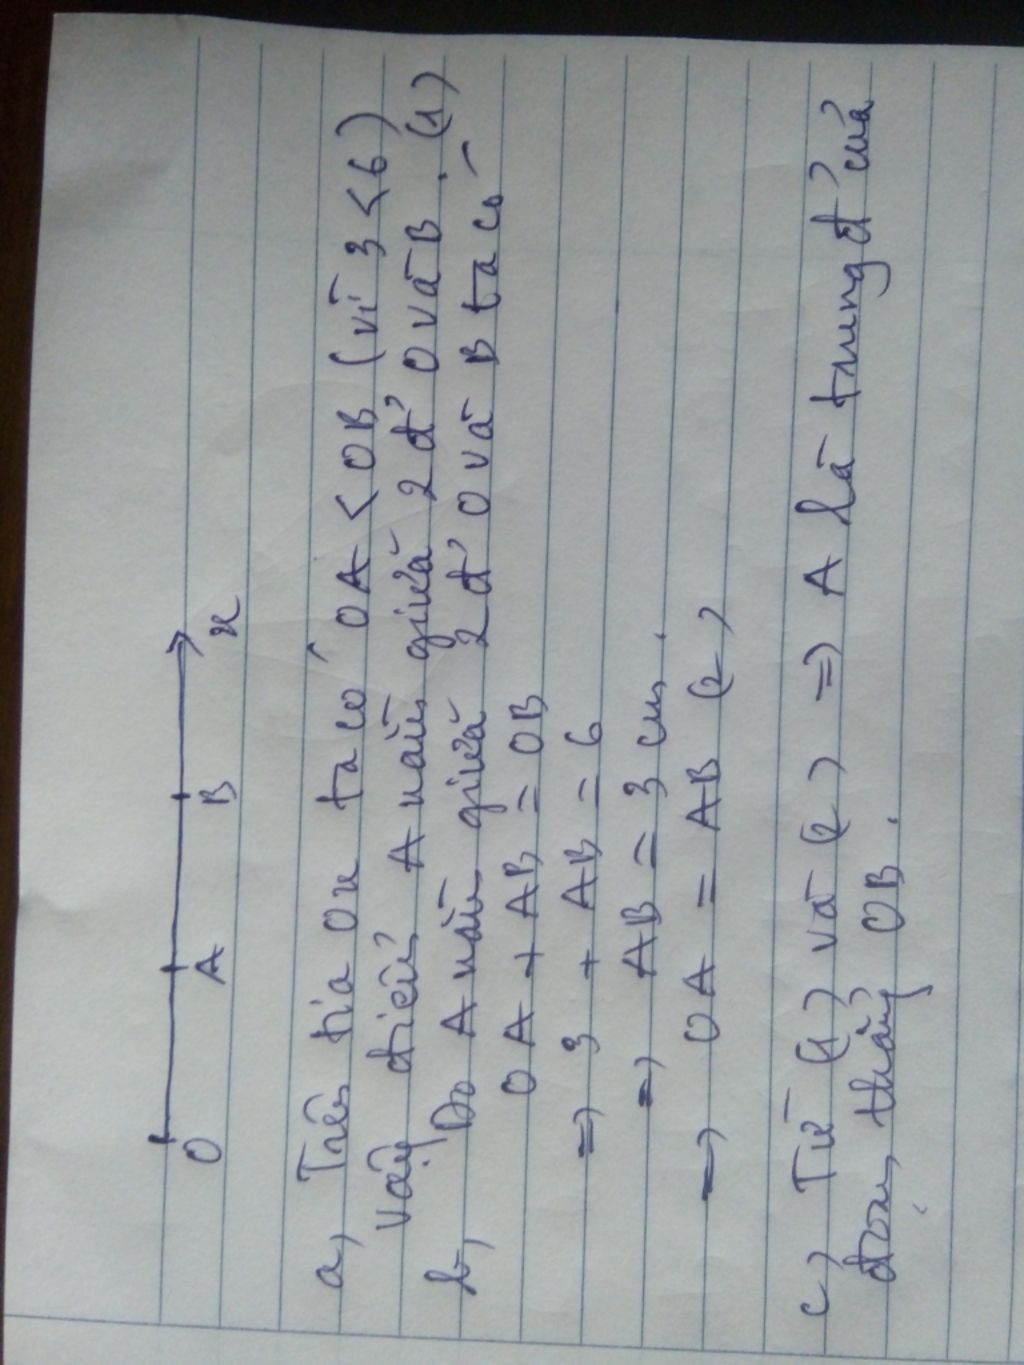 O A B x
a, Trên tia Ox ta có OA < OB (vì 3 < 6)
Vậy điểm A nằm giữa 2 đ' O và B. (1)
b, Do A nằm giữa 2 đ' O và B ta có
OA + AB = OB
=> 3 + AB = 6
=> AB = 3 cm.
=> OA = AB (2)
c, Từ (1) và (2) => A là trung đ' của
đoạn thẳng OB.